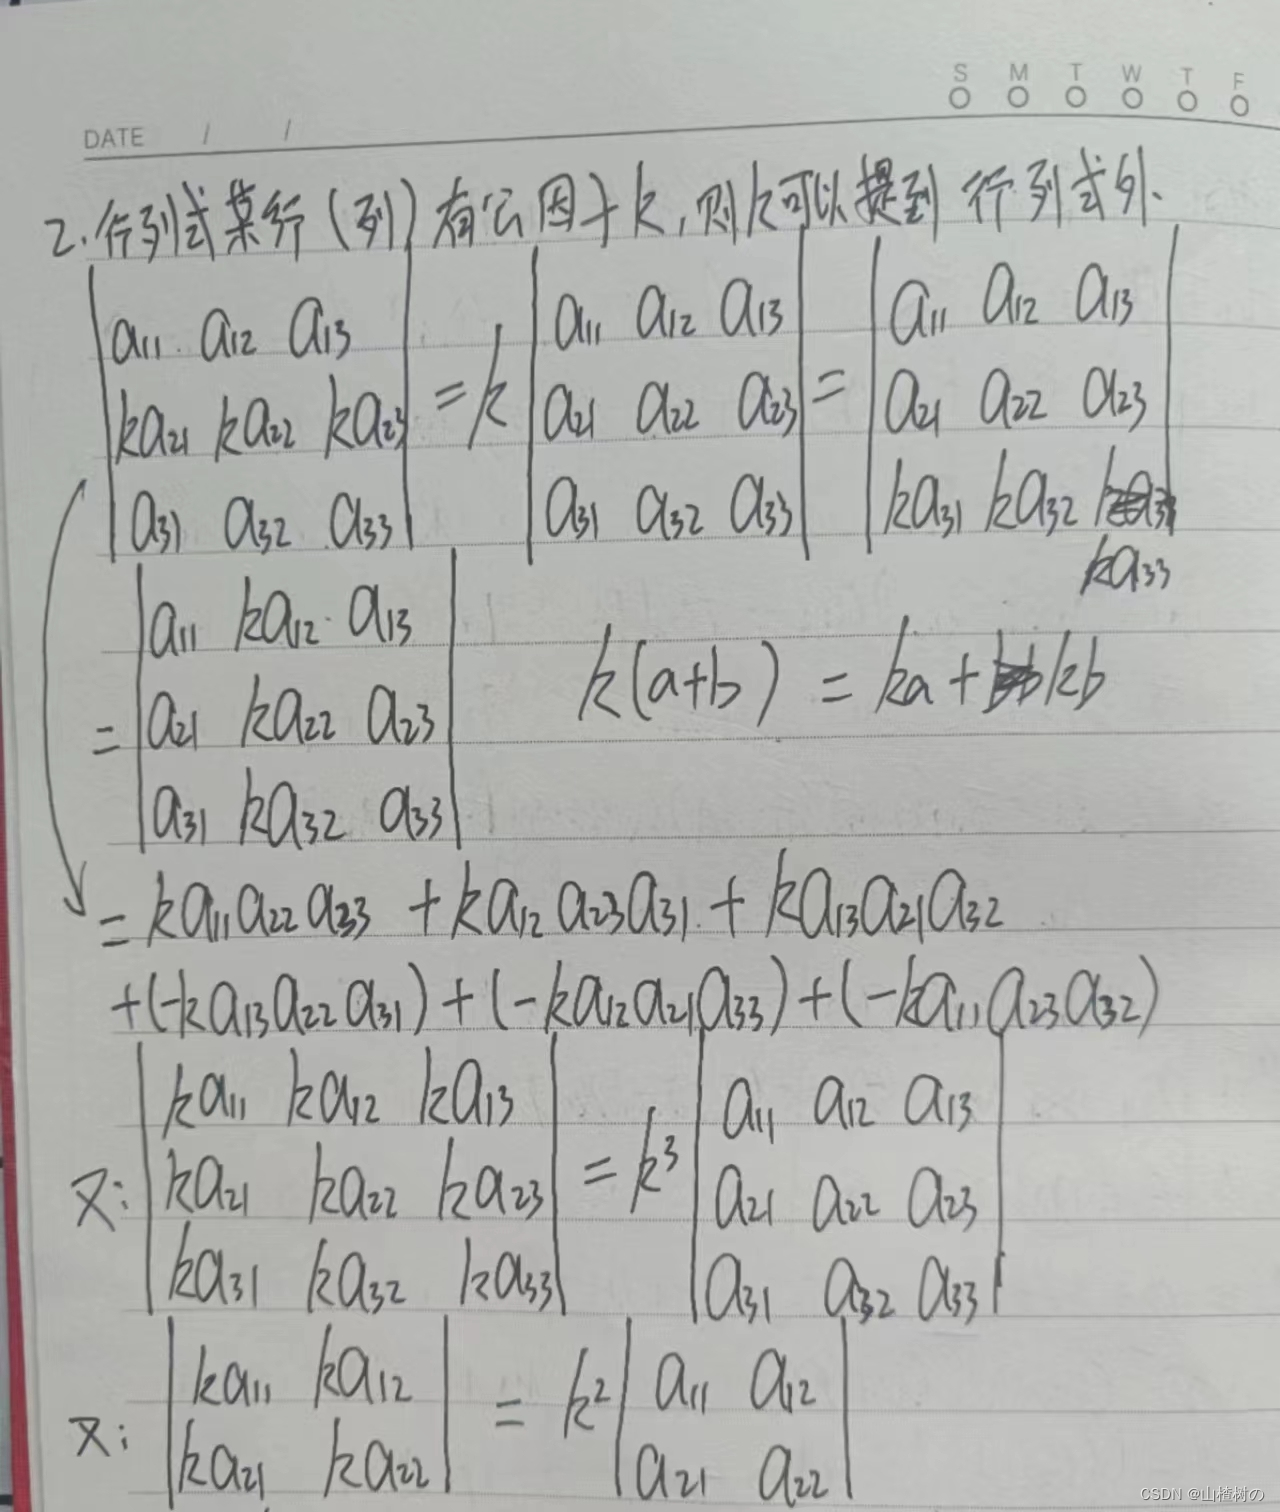 S M T W T F
DATE / /
2.行列式某行(列)有公因子k,则k可以提到行列式外.
| a11 a12 a13 | = k | a11 a12 a13 | = | a11 a12 a13 |
| ka21 ka22 ka23 | | a21 a22 a23 | | a21 a22 a23 |
| a31 a32 a33 | | a31 a32 a33 | | ka31 ka32 ka33 |
= | a11 ka12 a13 |
| a21 ka22 a23 | k(a+b) = ka + kb
| a31 ka32 a33 |
= ka11a22a33 + ka12a23a31 + ka13a21a32
+(-ka13a22a31) + (-ka12a21a33) + (-ka11a23a32)
又: | ka11 ka12 ka13 | = k³ | a11 a12 a13 |
| ka21 ka22 ka23 | | a21 a22 a23 |
| ka31 ka32 ka33 | | a31 a32 a33 |
又: | ka11 ka12 | = k² | a11 a12 |
| ka21 ka22 | | a21 a22 |
CSDN @山楂树の